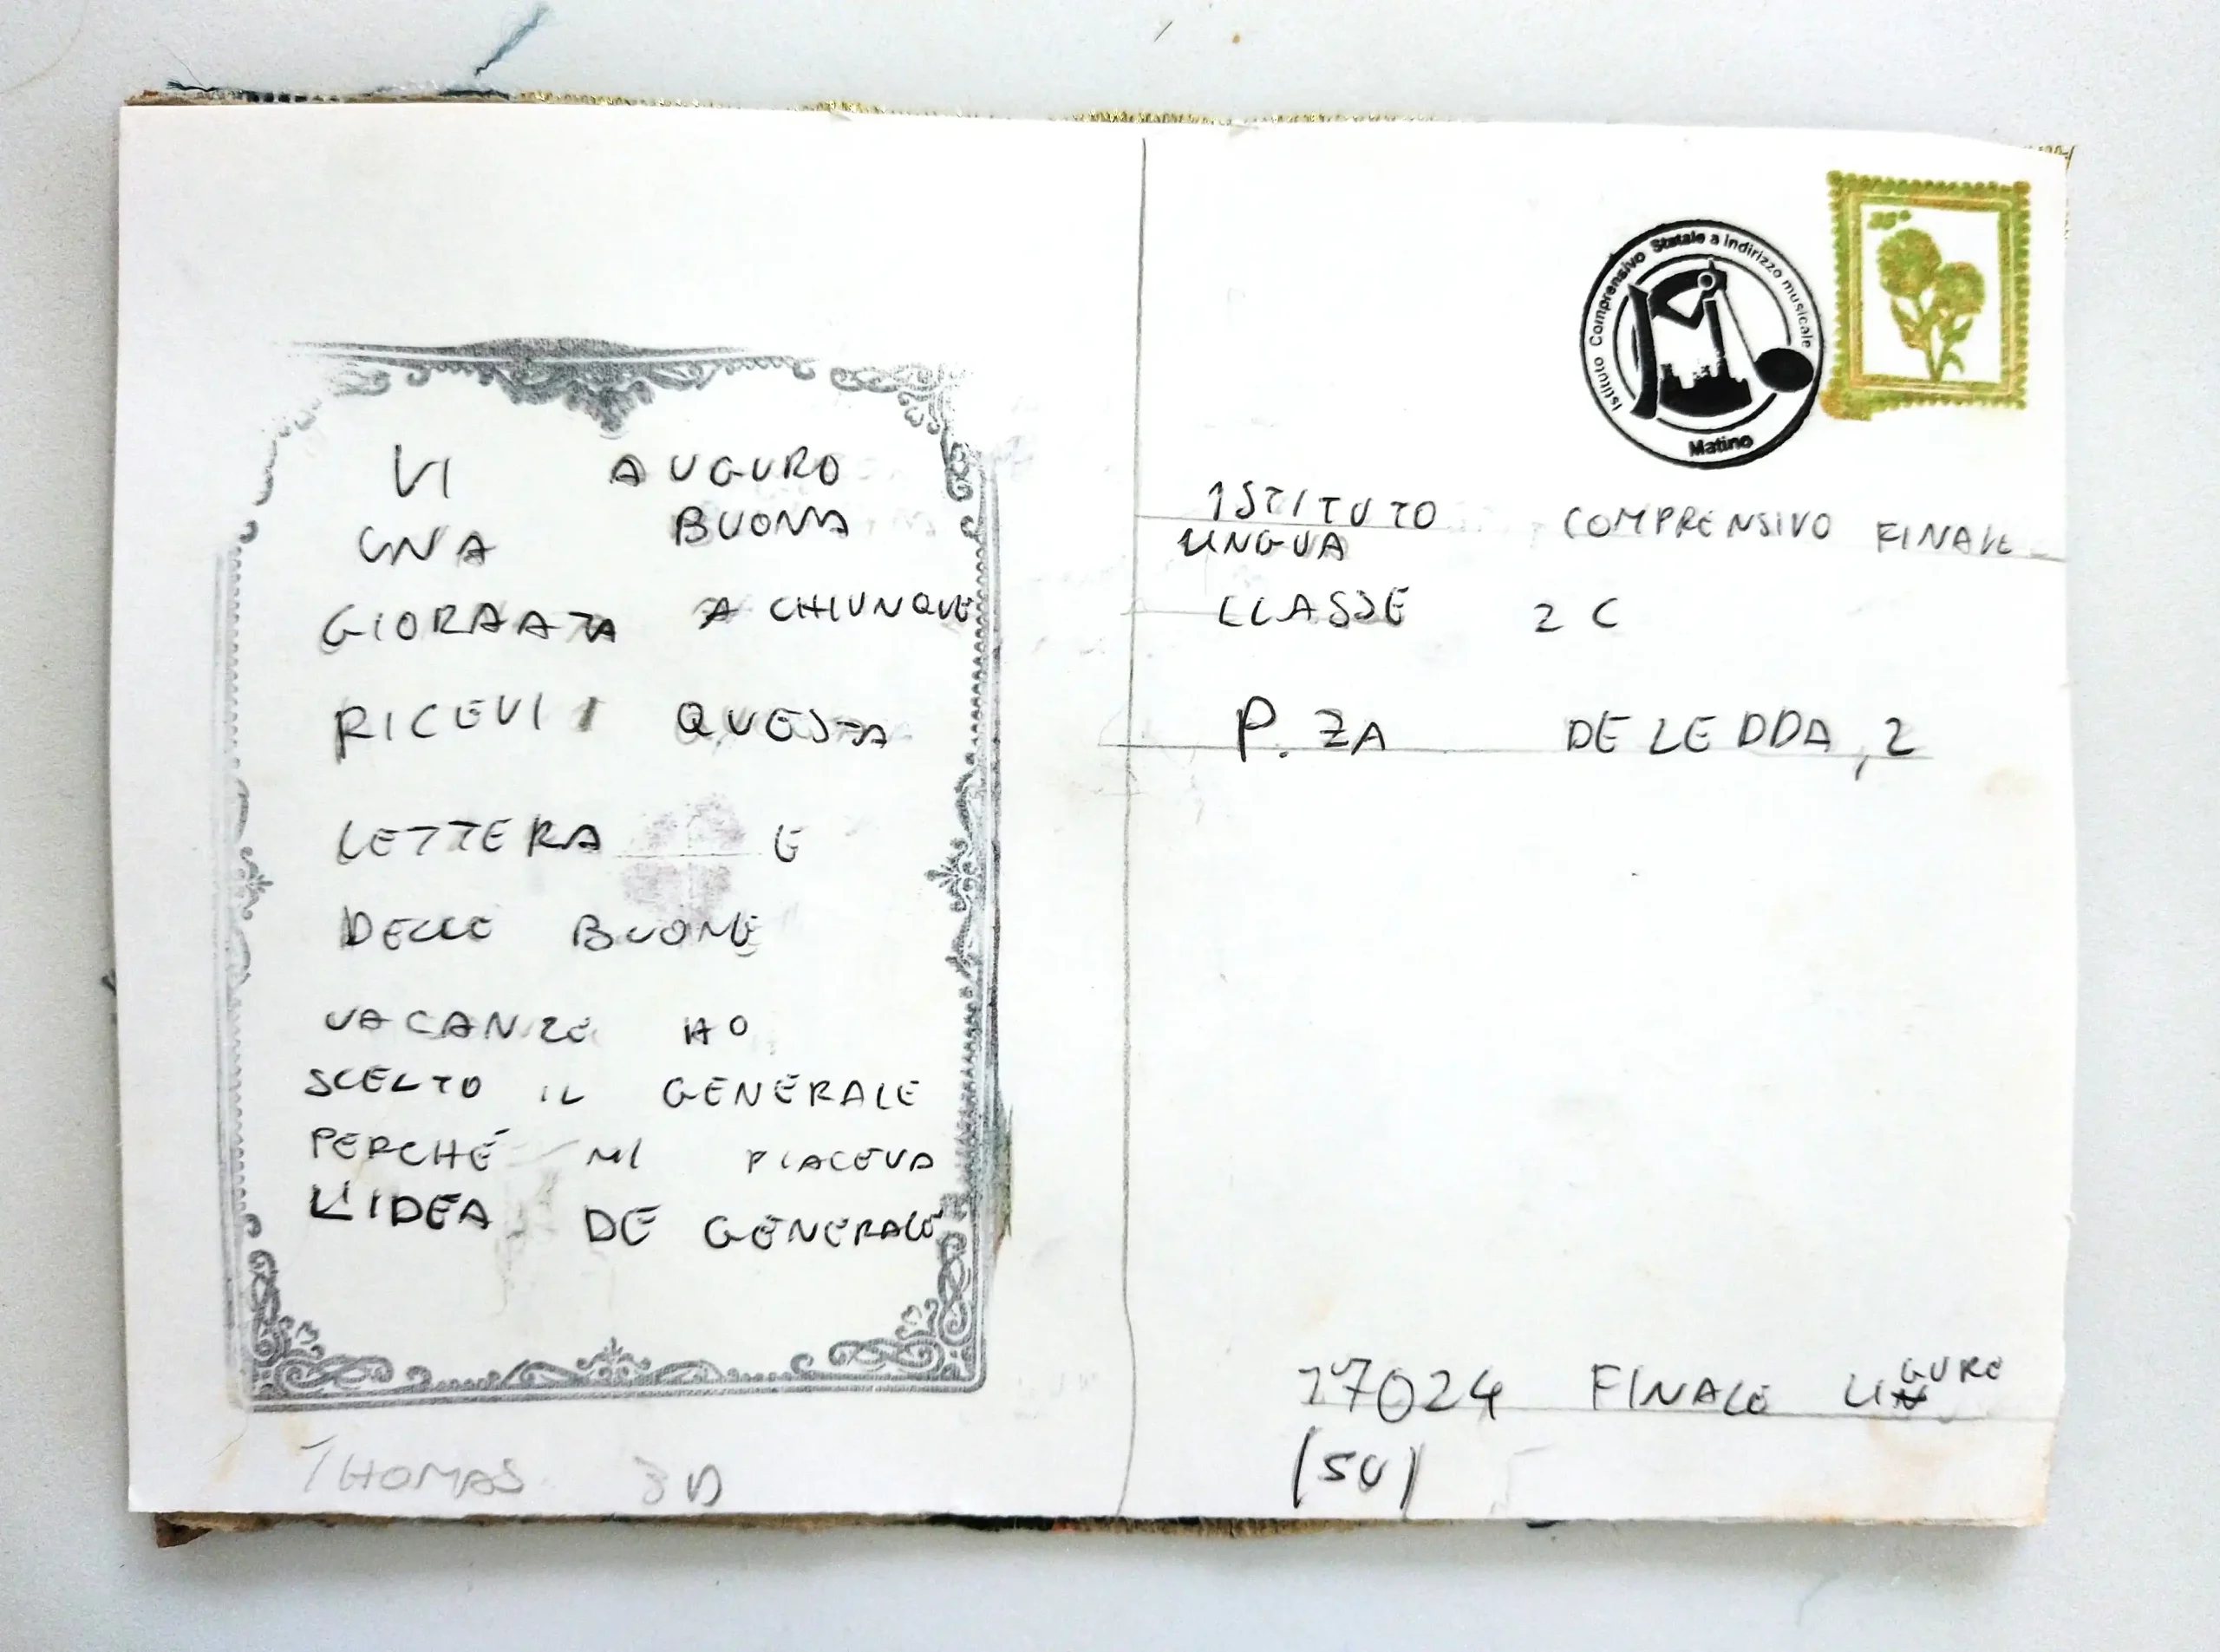 VI AUGURO
UNA BUONA
GIORNATA A CHIUNQUE
RICEVI QUESTA
LETTERA E
DELLE BUONE
VACANZE HO
SCELTO IL GENERALE
PERCHÉ MI PIACEVA
L'IDEA DE GENERALE
THOMAS 3D
Istituto Comprensivo Statale a indirizzo musicale
Matino
ISTITUTO COMPRENSIVO FINALE
LINGUA
CLASSE 2 C
P.ZA DELEDDA, 2
17024 FINALE LIGURE
(SV)